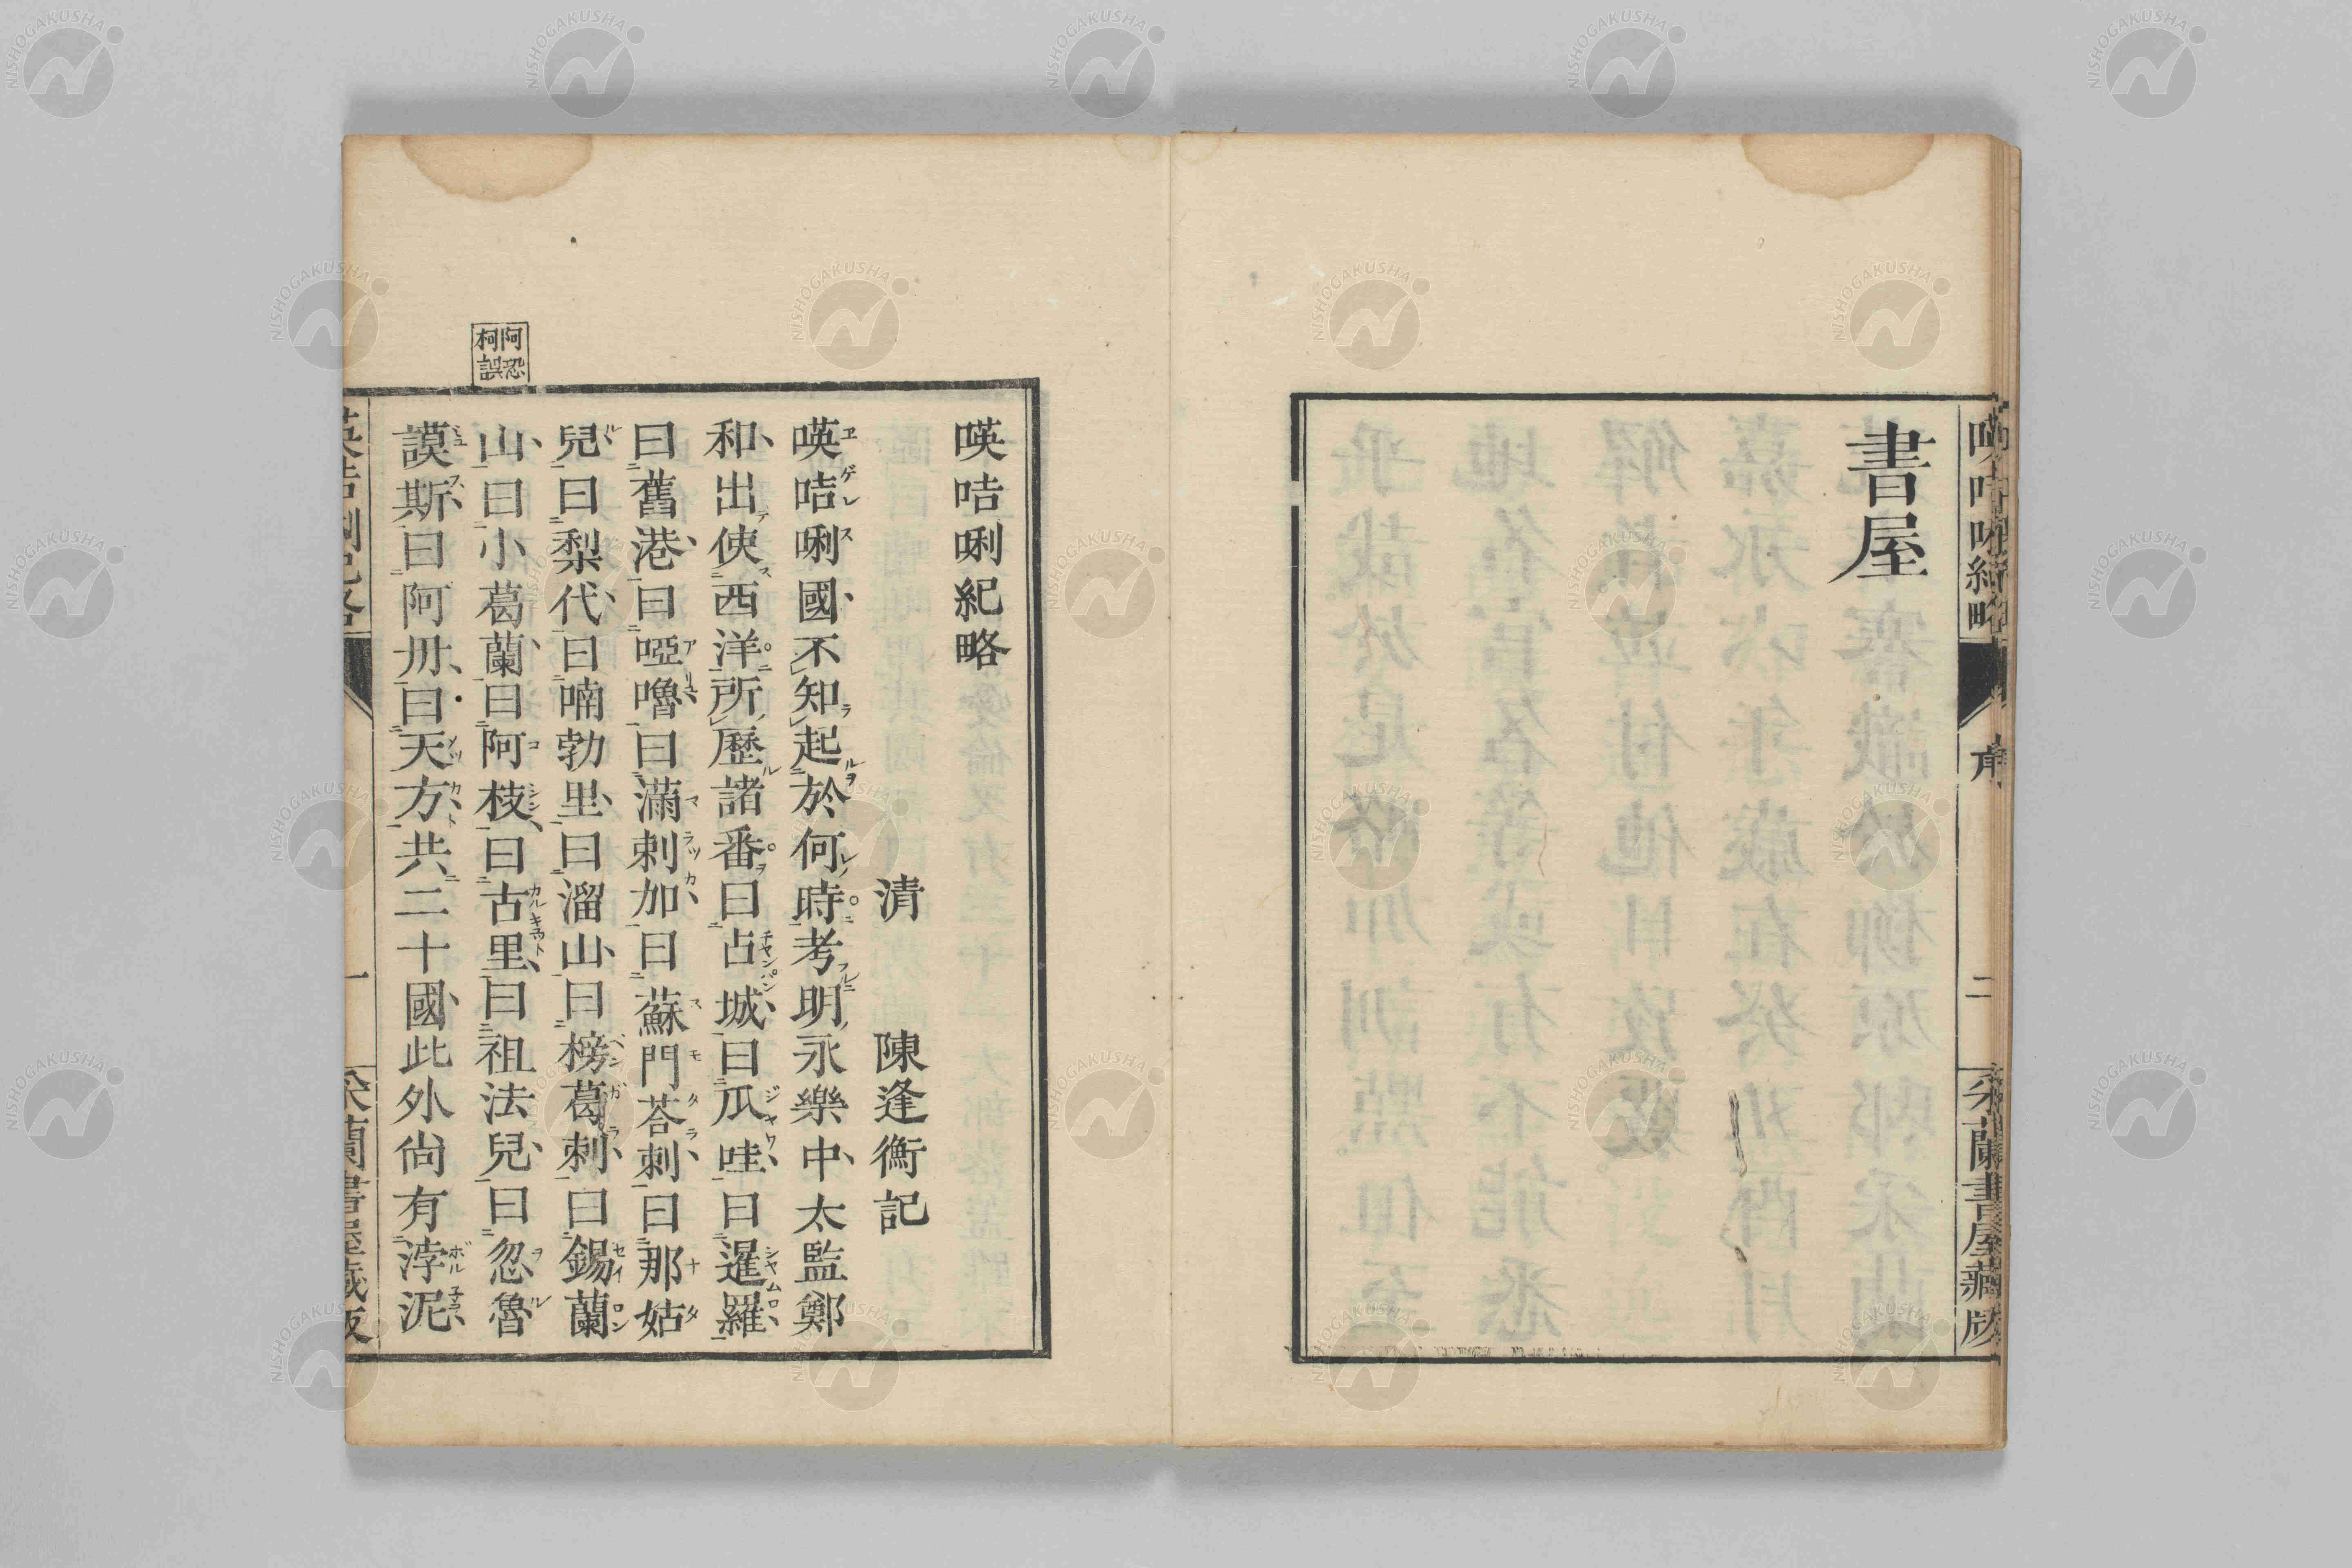 書屋
暎咭唎紀略
序
二
采蘭書屋藏版
暎咭唎紀略
清　陳逢衡記
暎咭唎國不知起於何時考明永樂中太監鄭
和出使西洋所歷諸番曰占城曰瓜哇曰暹羅
曰舊港曰啞嚕曰滿剌加曰蘇門荅剌曰那姑
兒曰梨代曰喃勃里曰溜山曰榜葛剌曰錫蘭
山曰小葛蘭曰阿枝曰古里曰祖法兒曰忽魯
謨斯曰阿丹曰天方共二十國此外尚有浡泥
阿恐
柯誤
英咭唎紀略
一
采蘭書屋藏版
NISHOGAKUSHA